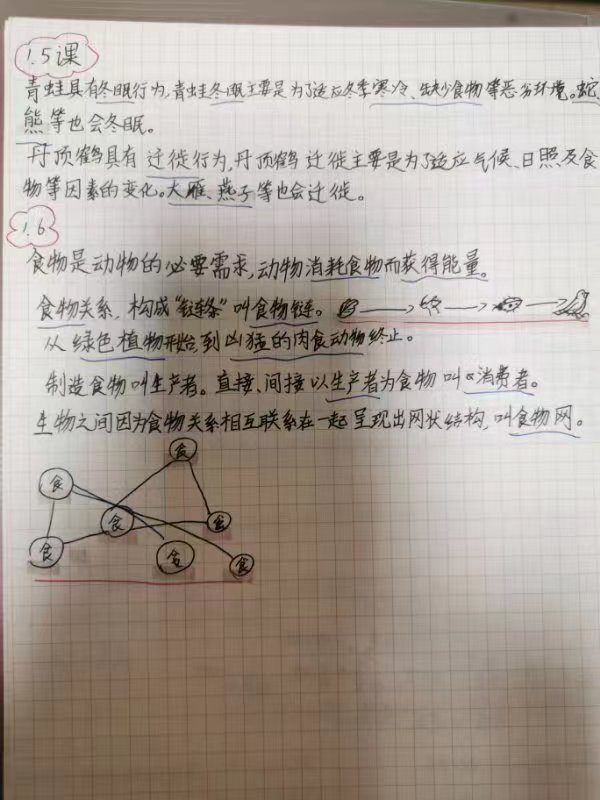 1.5课
青蛙具有冬眠行为,青蛙冬眠主要是为了适应冬季寒冷、缺少食物等恶劣环境。蛇、
熊等也会冬眠。
丹顶鹤具有迁徙行为,丹顶鹤迁徙主要是为了适应气候、日照及食
物等因素的变化。大雁、燕子等也会迁徙。
1.6
食物是动物的必要需求,动物消耗食物而获得能量。
食物关系,构成“链条”叫食物链。
从绿色植物开始到凶猛的肉食动物终止。
制造食物叫生产者。直接、间接以生产者为食物叫消费者。
生物之间因为食物关系相互联系在一起呈现出网状结构,叫食物网。
食
食
食 食
食 食 食